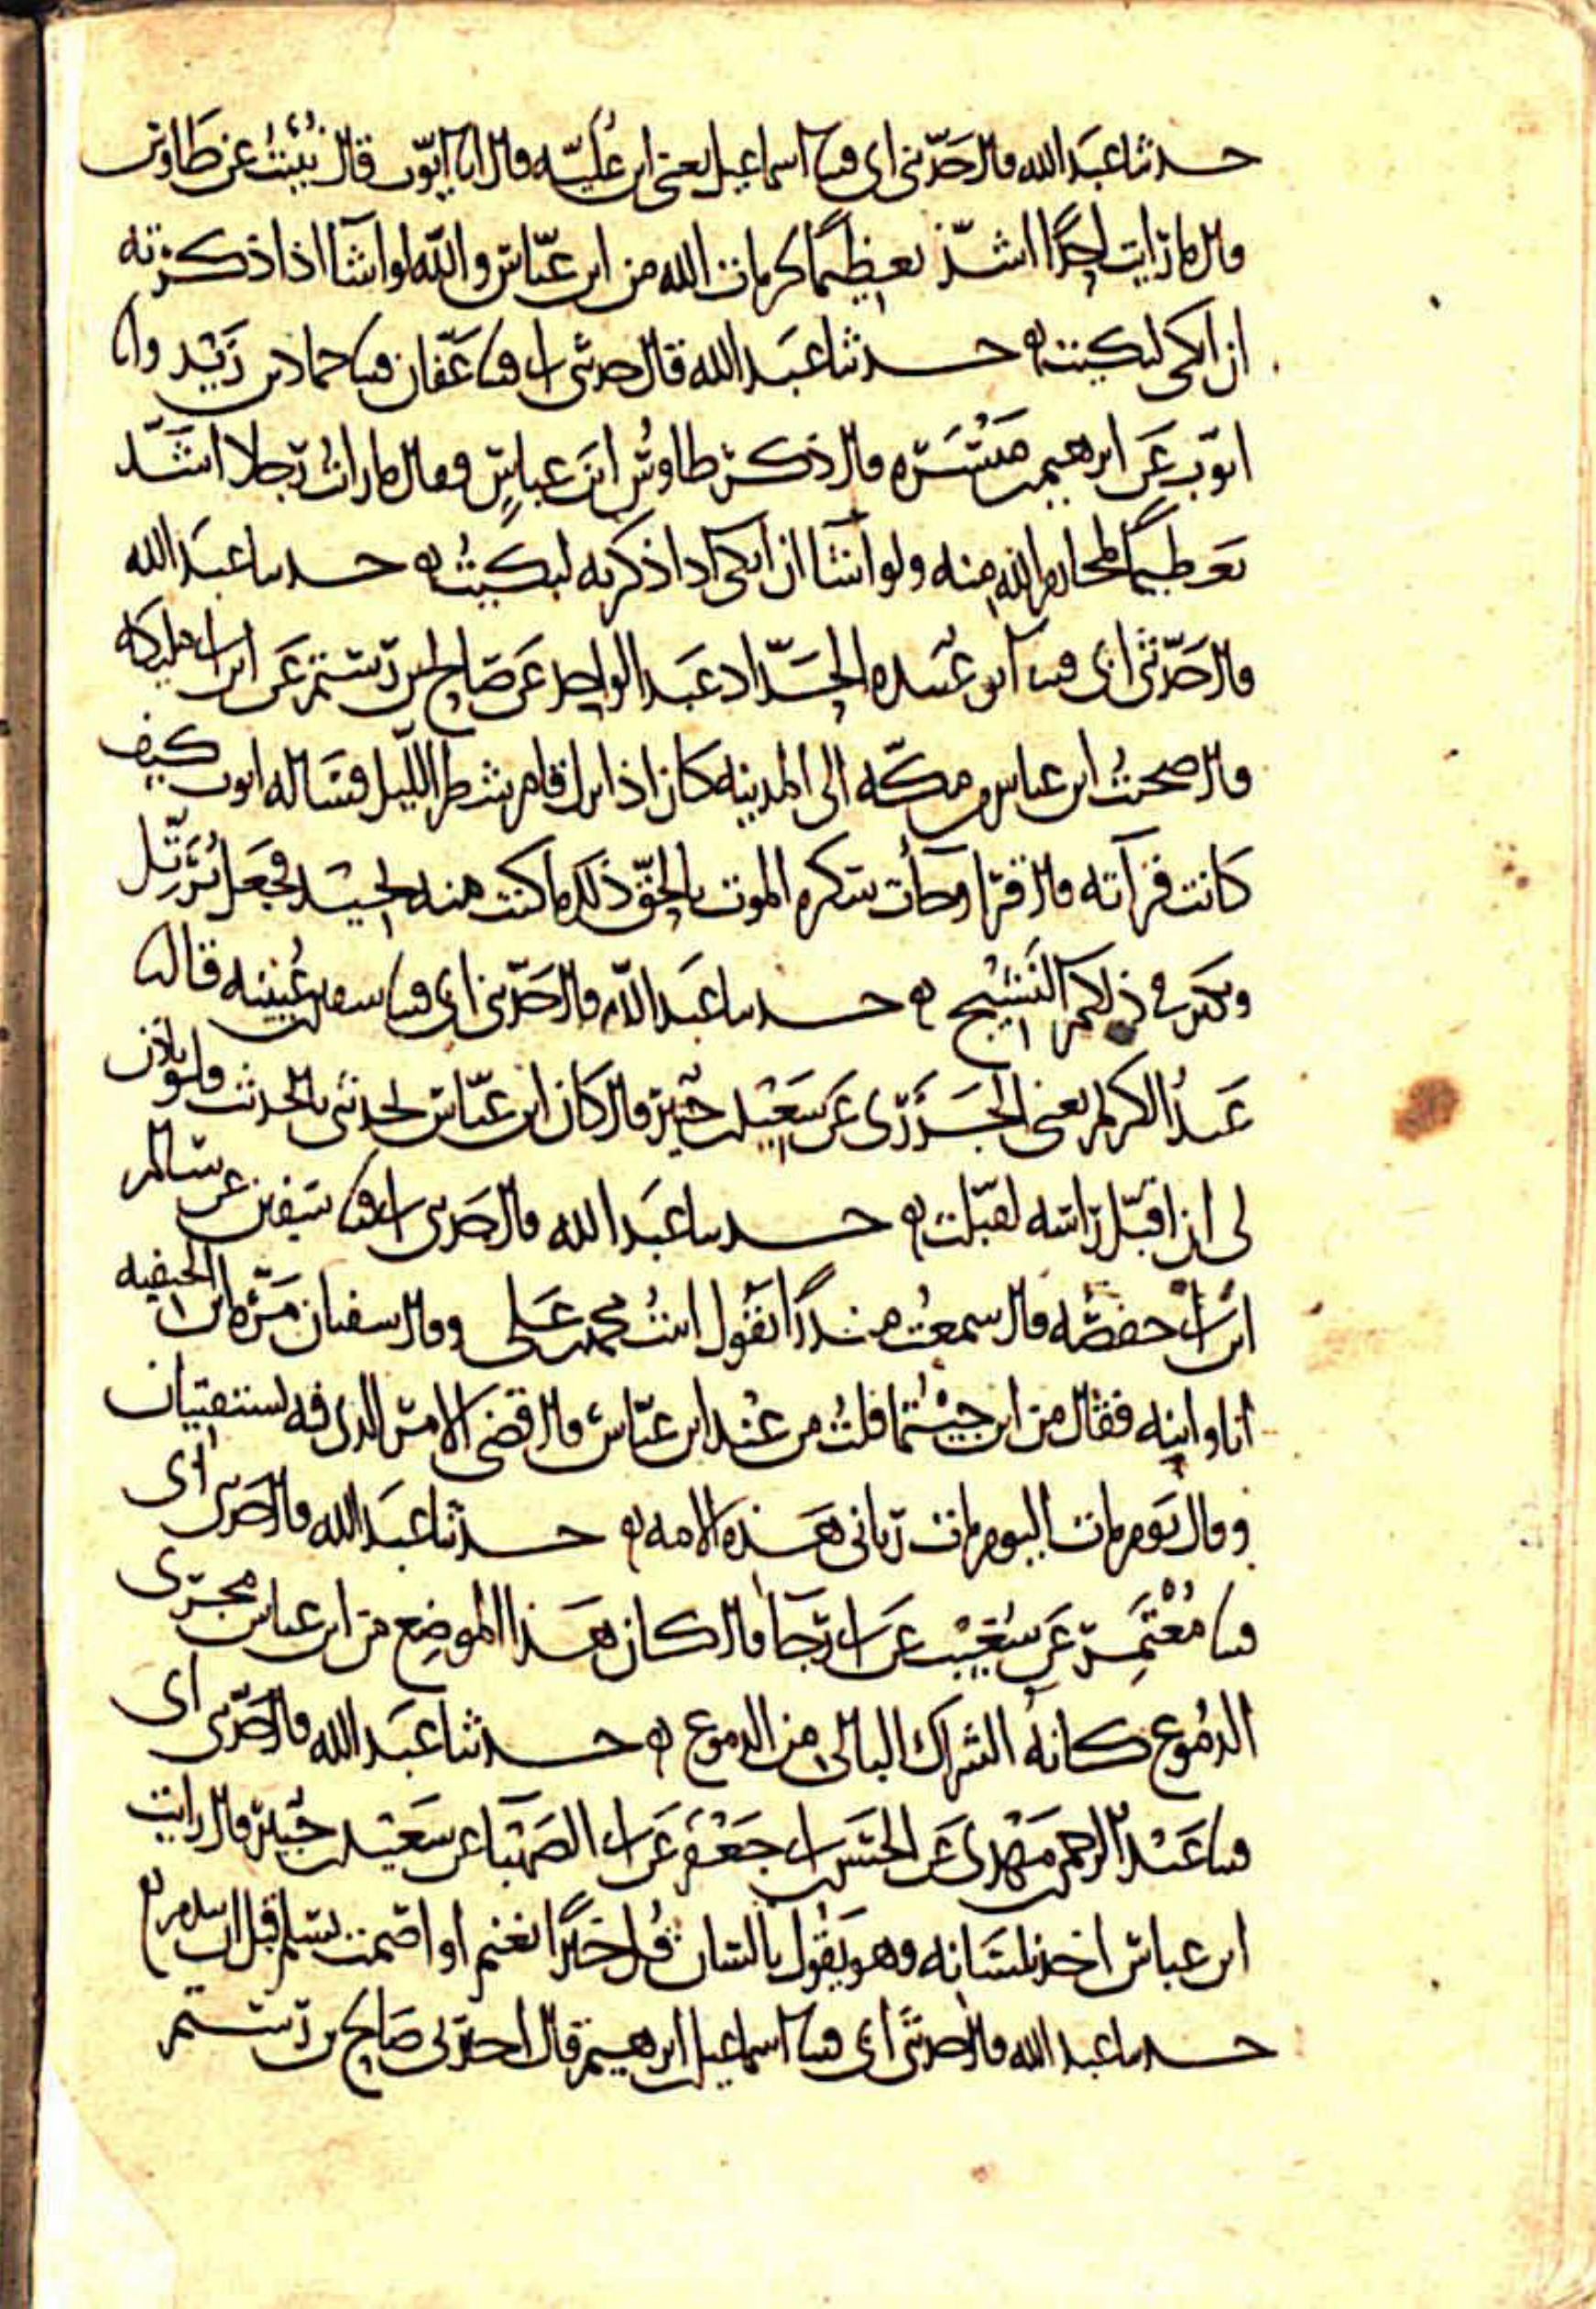 حدثنا عبد الله قال حدثني ابي قثنا اسماعيل يعني ابن علية قال انا ايوب قال نبئت عن طاوس
قال ما رايت احدا اشد تعظيما لحرمات الله من ابن عباس والله لو اشآ اذا ذكرته
ان ابكي لبكيت ه حدثنا عبد الله قال حدثني ابي قثنا عفان قثنا حماد بن زيد
ايوب عن ابرهيم بن ميسره قال ذكر طاوس ابن عباس فقال ما رايت رجلا اشد
تعظيما لمحارم الله منه ولو اشا ان ابكي اذا ذكرته لبكيت ه حدثنا عبد الله
قال حدثني ابي قثنا ابو عبيده الحداد عبد الواحد عن صالح بن رستم عن ابن ابي مليكه
قال صحبت ابن عباس من مكه الى المدينه كان اذا نزل قام شطر الليل فسأله ايوب كيف
كانت قرآته قال قرا وجآت سكرة الموت بالحق ذلك ما كنت منه تحيد فجعل يرتل
ويكثر في ذلكم النشيج ه حدثنا عبد الله قال حدثني ابي قثنا سفين بن عيينه قال ثنا
عبد الكريم يعني الجزري عن سعيد بن جبير قال كان ابن عباس يحدثني بالحديث ولو ياذن
لي ان اقبل راسه لقبلت ه حدثنا عبد الله قال حدثني ابي قثنا سفين عن سالم
ابن ابي حفصه قال سمعت منذرا يقول اتيت محمد بن علي وقال سفيان مره ابن الحنفيه
انا وابنه فقال من اين جيتما قلت من عند ابن عباس قال قضي الامر الذي فيه تستفتيان
وقال يوم مات اليوم مات رباني هذه الامه ه حدثنا عبد الله قال حدثني ابي
قثنا معتمر عن شعيب عن ابي رجآ قال كان هذا الموضع من ابن عباس مجرى
الدموع كانه الشراك البالي من الدموع ه حدثنا عبد الله قال حدثني ابي
قثنا عبد الرحمن بن مهدي عن الحسن بن ابي جعفر عن ابي الصهبا عن سعيد بن جبير قال رايت
ابن عباس اخذ بلسانه وهو يقول يا لسان قل خيرا تغنم او اصمت تسلم قبل ان تندم ه
حدثنا عبد الله قال حدثني ابي قثنا اسماعيل بن ابرهيم قال اخبرني صالح بن رستم